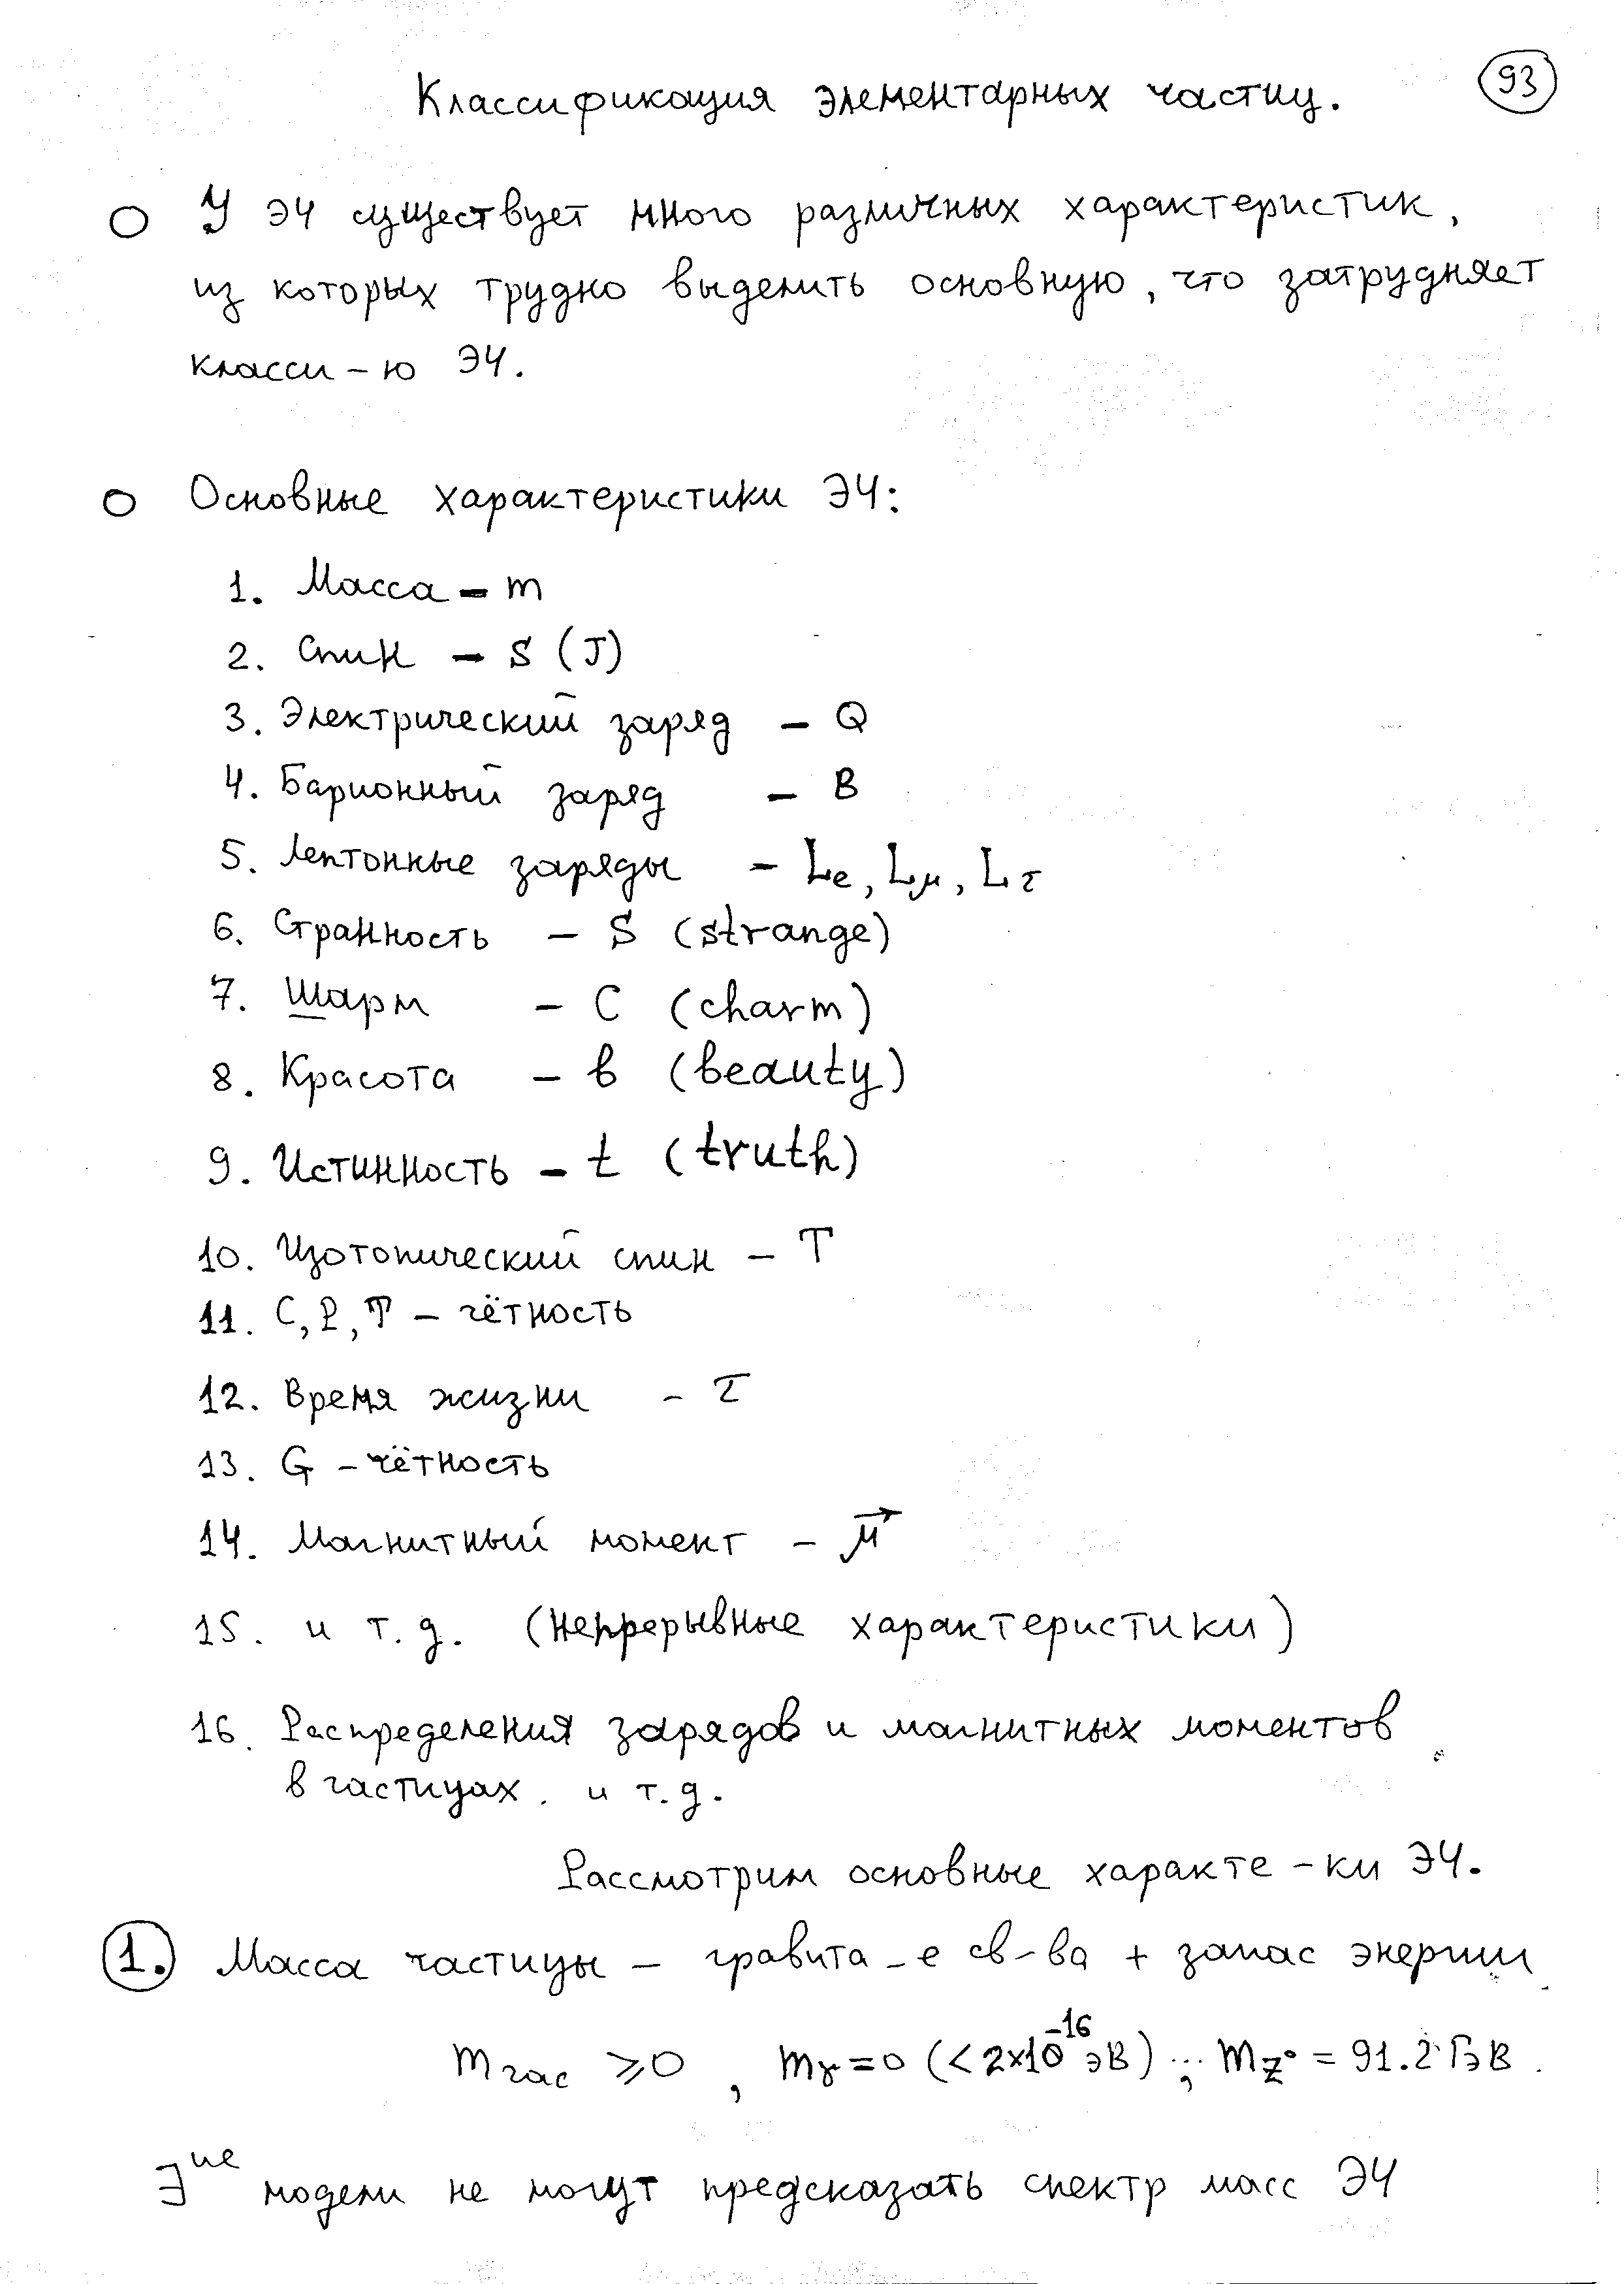 Классификация элементарных частиц.
93
У ЭЧ существует много различных характеристик,
из которых трудно выделить основную, что затрудняет
класси-ю ЭЧ.
Основные характеристики ЭЧ:
1. Масса - m
2. Спин - S (J)
3. Электрический заряд - Q
4. Барионный заряд - B
5. Лептонные заряды - Le, Lμ, Lτ
6. Странность - S (strange)
7. Шарм - C (charm)
8. Красота - b (beauty)
9. Истинность - t (truth)
10. Изотопический спин - T
11. C, P, T - чётность
12. Время жизни - τ
13. G - чётность
14. Магнитный момент - μ⃗
15. и т.д. (Непрерывные характеристики)
16. Распределения зарядов и магнитных моментов
в частицах. и т.д.
Рассмотрим основные характе-ки ЭЧ.
1. Масса частицы - гравита-е св-ва + запас энергии
mчас ⩾ 0, mγ = 0 (< 2×10⁻¹⁶ эВ) ...; mZ⁰ = 91.2 ГэВ.
∃ие модели не могут предсказать спектр масс ЭЧ